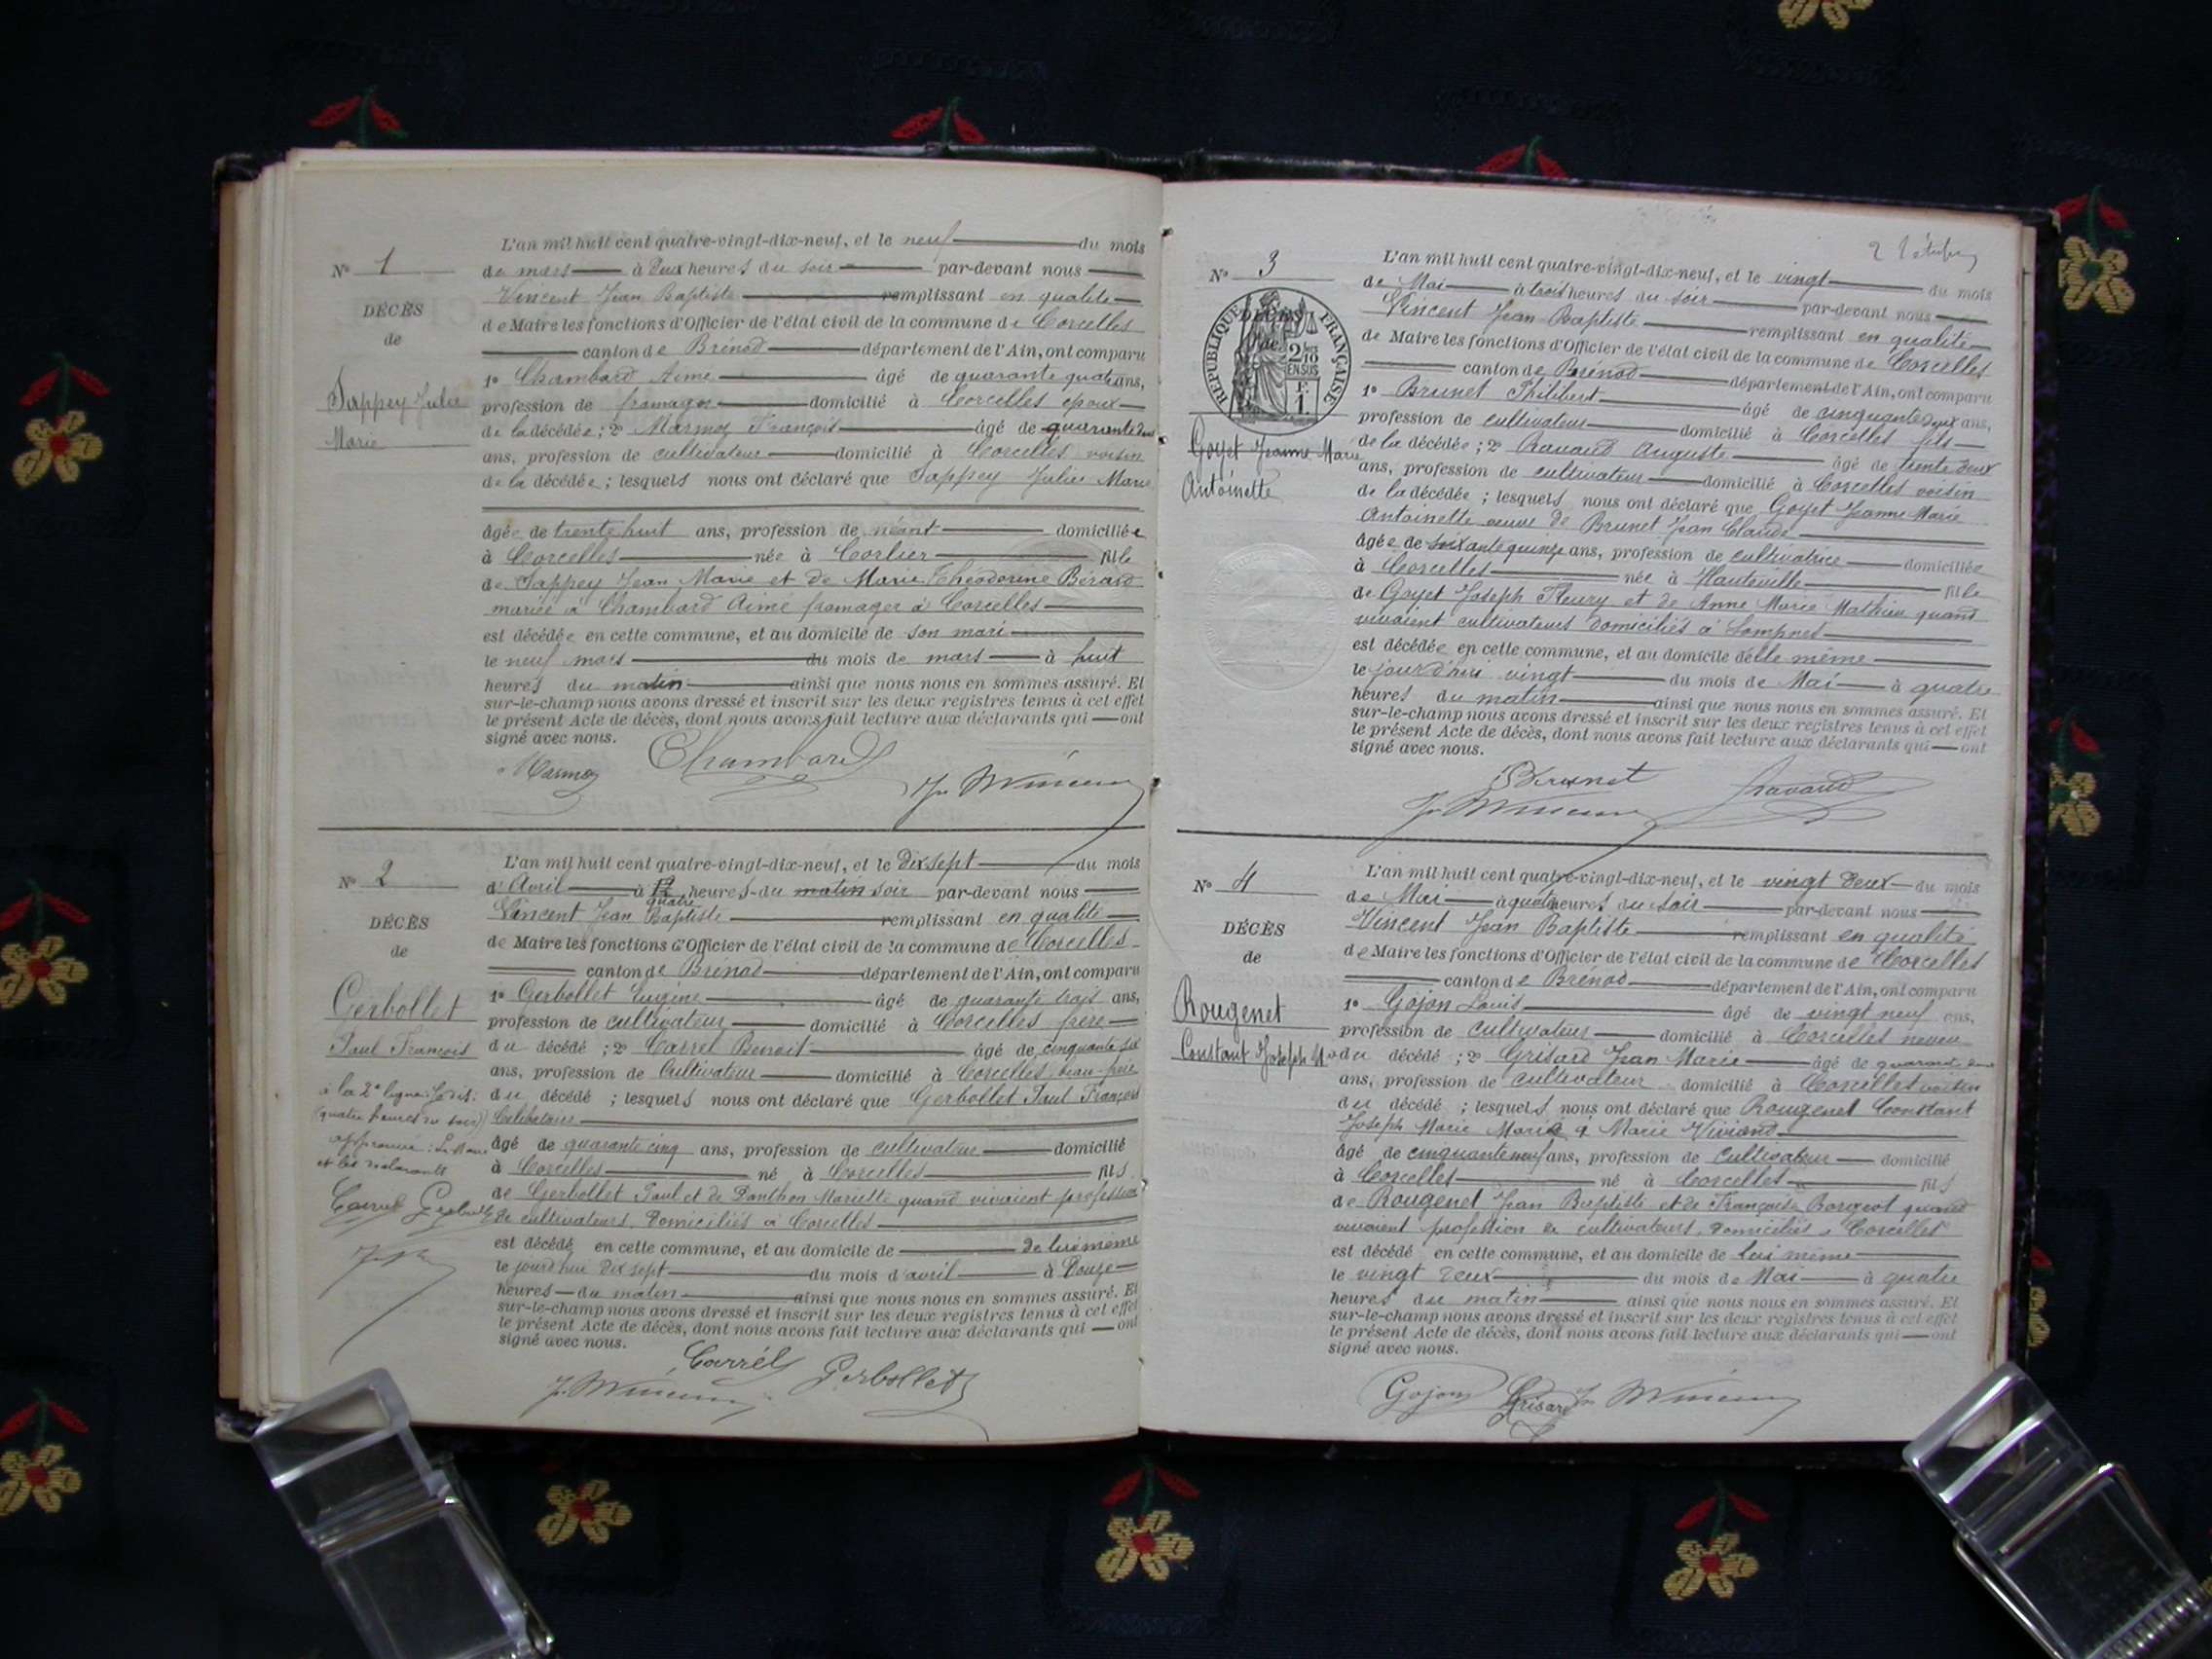 L'an mil huit cent quatre-vingt-dix-neuf, et le neuf du mois
N° 1
de mars à deux heures du soir par-devant nous
Vincent Jean Baptiste remplissant en qualité
DÉCÈS
de Maire les fonctions d'Officier de l'état civil de la commune de Corcelles
de
canton de Brénod département de l'Ain, ont comparu
1° Chambard Aimé âgé de quarante quatre ans,
Sappey Julie
profession de fromager domicilié à Corcelles époux
Marie
de la décédée ; 2° Marmoz François âgé de quarante deux
ans, profession de cultivateur domicilié à Corcelles voisin
de la décédée ; lesquels nous ont déclaré que Sappey Julie Marie
âgée de trente huit ans, profession de néant domiciliée
à Corcelles née à Corlier fille
de Sappey Jean Marie et de Marie Théodorine Bérard
mariée à Chambard Aimé fromager à Corcelles
est décédée en cette commune, et au domicile de son mari
le neuf mars du mois de mars à huit
heures du matin ainsi que nous nous en sommes assuré. Et
sur-le-champ nous avons dressé et inscrit sur les deux registres tenus à cet effet
le présent Acte de décès, dont nous avons fait lecture aux déclarants qui ont
signé avec nous.
Marmoz Chambard Jn Vincent
L'an mil huit cent quatre-vingt-dix-neuf, et le dix sept du mois
N° 2
d'Avril à 12 quatre heures du matin soir par-devant nous
Vincent Jean Baptiste remplissant en qualité
DÉCÈS
de Maire les fonctions d'Officier de l'état civil de la commune de Corcelles
de
canton de Brénod département de l'Ain, ont comparu
Gerbollet
1° Gerbollet Eugène âgé de quarante trois ans,
profession de cultivateur domicilié à Corcelles frère
Paul François
du décédé ; 2° Carrel Benoit âgé de cinquante six
ans, profession de Cultivateur domicilié à Corcelles beau-frère
à la 2e ligne : Lisez :
du décédé ; lesquels nous ont déclaré que Gerbollet Paul François
(quatre heures du soir)
Célibataire
approuvé : Le Maire
âgé de quarante cinq ans, profession de cultivateur domicilié
et les déclarants
à Corcelles né à Corcelles fils
de Gerbollet Paul et de Panthon Mariette quand vivaient profession
Carrel Gerbollet
de cultivateurs, domiciliés à Corcelles
est décédé en cette commune, et au domicile de de lui même
le jourd'hui dix sept du mois d'avril à Douze
heures du matin ainsi que nous nous en sommes assuré. Et
sur-le-champ nous avons dressé et inscrit sur les deux registres tenus à cet effet
le présent Acte de décès, dont nous avons fait lecture aux déclarants qui ont
signé avec nous.
Carrel Gerbollet
Jn Vincent
2
L'an mil huit cent quatre-vingt-dix-neuf, et le vingt du mois
N° 3
de Mai à trois heures du soir par-devant nous
RÉPUBLIQUE FRANÇAISE
DÉCÈS
de
2/10 EN SUS
F. 1.
Vincent Jean Baptiste remplissant en qualité
de Maire les fonctions d'Officier de l'état civil de la commune de Corcelles
canton de Brénod département de l'Ain, ont comparu
1° Brunet Philibert âgé de cinquante deux ans,
profession de cultivateur domicilié à Corcelles fils
Goyet Jeanne Marie
de la décédée ; 2° Ravaud Auguste âgé de trente deux
Antoinette
ans, profession de cultivateur domicilié à Corcelles voisin
de la décédée ; lesquels nous ont déclaré que Goyet Jeanne Marie
Antoinette veuve de Brunet Jean Claude
âgée de soixante quinze ans, profession de cultivatrice domiciliée
à Corcelles née à Hauteville fille
de Goyet Joseph Fleury et de Anne Marie Mathieu quand
vivaient cultivateurs domiciliés à Lompnes
est décédée en cette commune, et au domicile d'elle même
le jourd'hui vingt du mois de Mai à quatre
heures du matin ainsi que nous nous en sommes assuré. Et
sur-le-champ nous avons dressé et inscrit sur les deux registres tenus à cet effet
le présent Acte de décès, dont nous avons fait lecture aux déclarants qui ont
signé avec nous.
Brunet Ravaud
Jn Vincent
L'an mil huit cent quatre-vingt-dix-neuf, et le vingt deux du mois
N° 4
de Mai à quatre heures du soir par-devant nous
Vincent Jean Baptiste remplissant en qualité
DÉCÈS
de Maire les fonctions d'Officier de l'état civil de la commune de Corcelles
de
canton de Brénod département de l'Ain, ont comparu
Rougenet
1° Gojon Louis âgé de vingt neuf ans,
profession de cultivateur domicilié à Corcelles neveu
Constant Joseph M.
du décédé ; 2° Grisard Jean Marie âgé de quarante deux
ans, profession de cultivateur domicilié à Corcelles voisin
du décédé ; lesquels nous ont déclaré que Rougenet Constant
Joseph Marie Marié à Marie Viviand
âgé de cinquante neuf ans, profession de Cultivateur domicilié
à Corcelles né à Corcelles fils
de Rougenet Jean Baptiste et de Françoise Borgeot quand
vivaient profession de cultivateurs, domiciliés à Corcelles
est décédé en cette commune, et au domicile de lui même
le vingt deux du mois de Mai à quatre
heures du matin ainsi que nous nous en sommes assuré. Et
sur-le-champ nous avons dressé et inscrit sur les deux registres tenus à cet effet
le présent Acte de décès, dont nous avons fait lecture aux déclarants qui ont
signé avec nous.
Gojon Grisard Jn Vincent